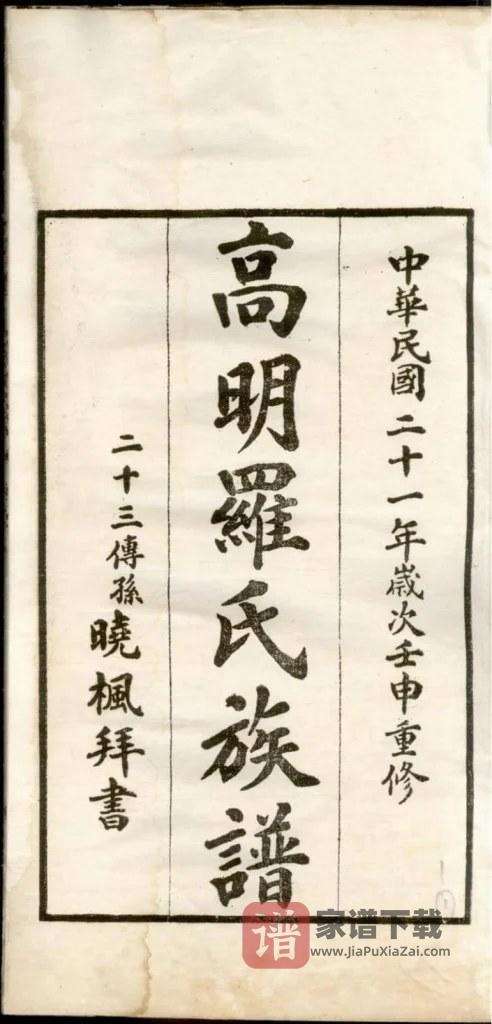 中華民國二十一年歲次壬申重修
高明羅氏族譜
二十三傳孫曉楓拜書
谱
家谱下载
www.JiaPuXiaZai.com